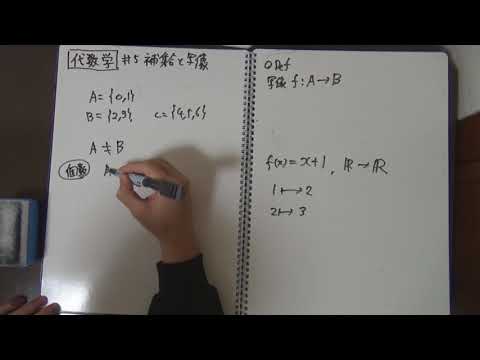 代数学 #5 補給と写像
A = {0,1}
B = {2,3}, C = {4,5,6}
A ≠ B
個数 A
○ Def
写像 f : A → B
f(x) = x+1, ℝ → ℝ
1 ↦ 2
2 ↦ 3